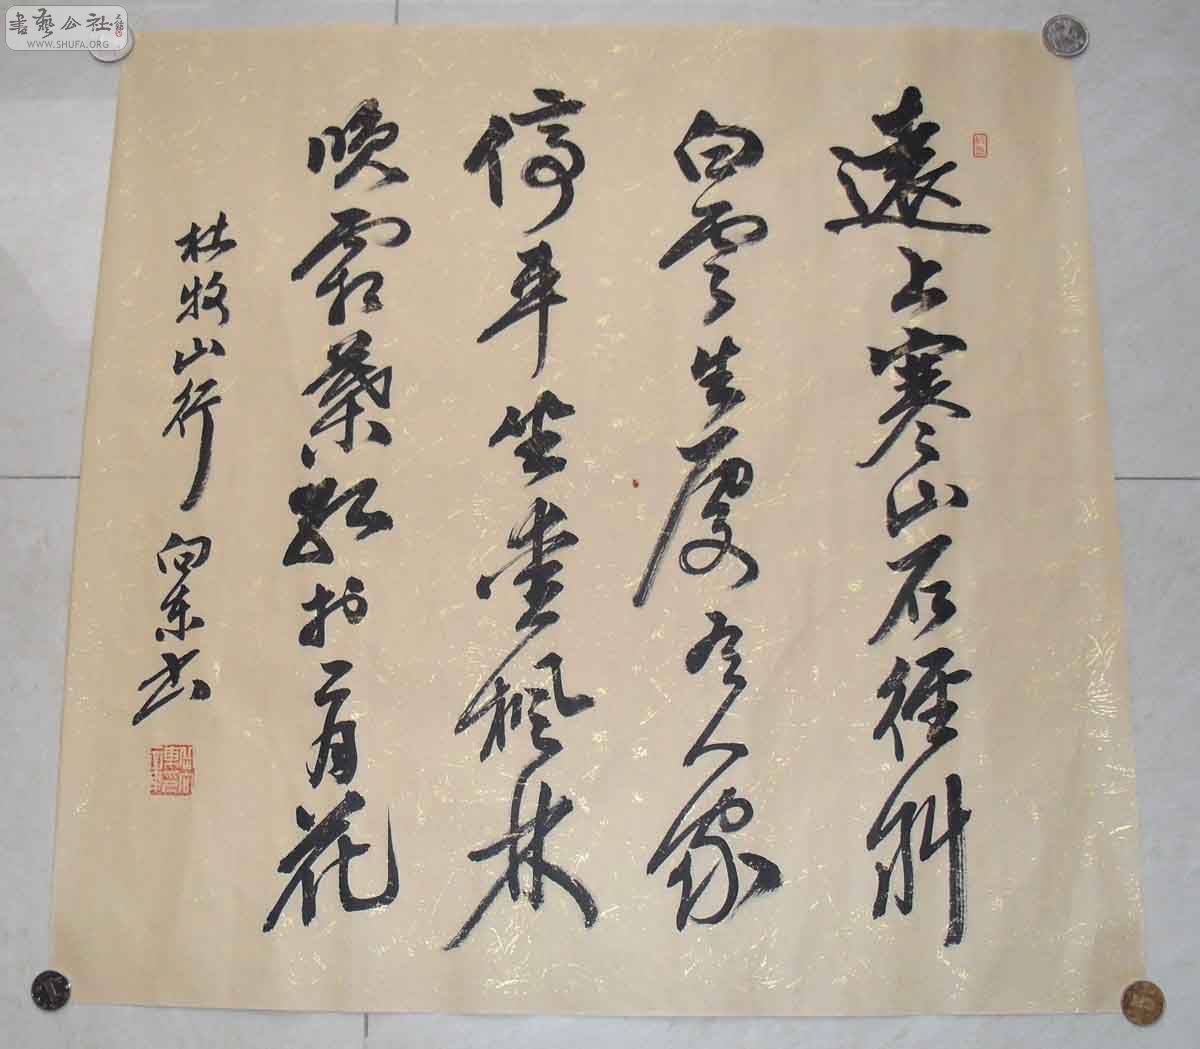 書藝公社
WWW.SHUFA.ORG
遠上寒山石徑斜
白雲生處有人家
停車坐愛楓林
晚霜葉紅於二月花
杜牧山行 向東書